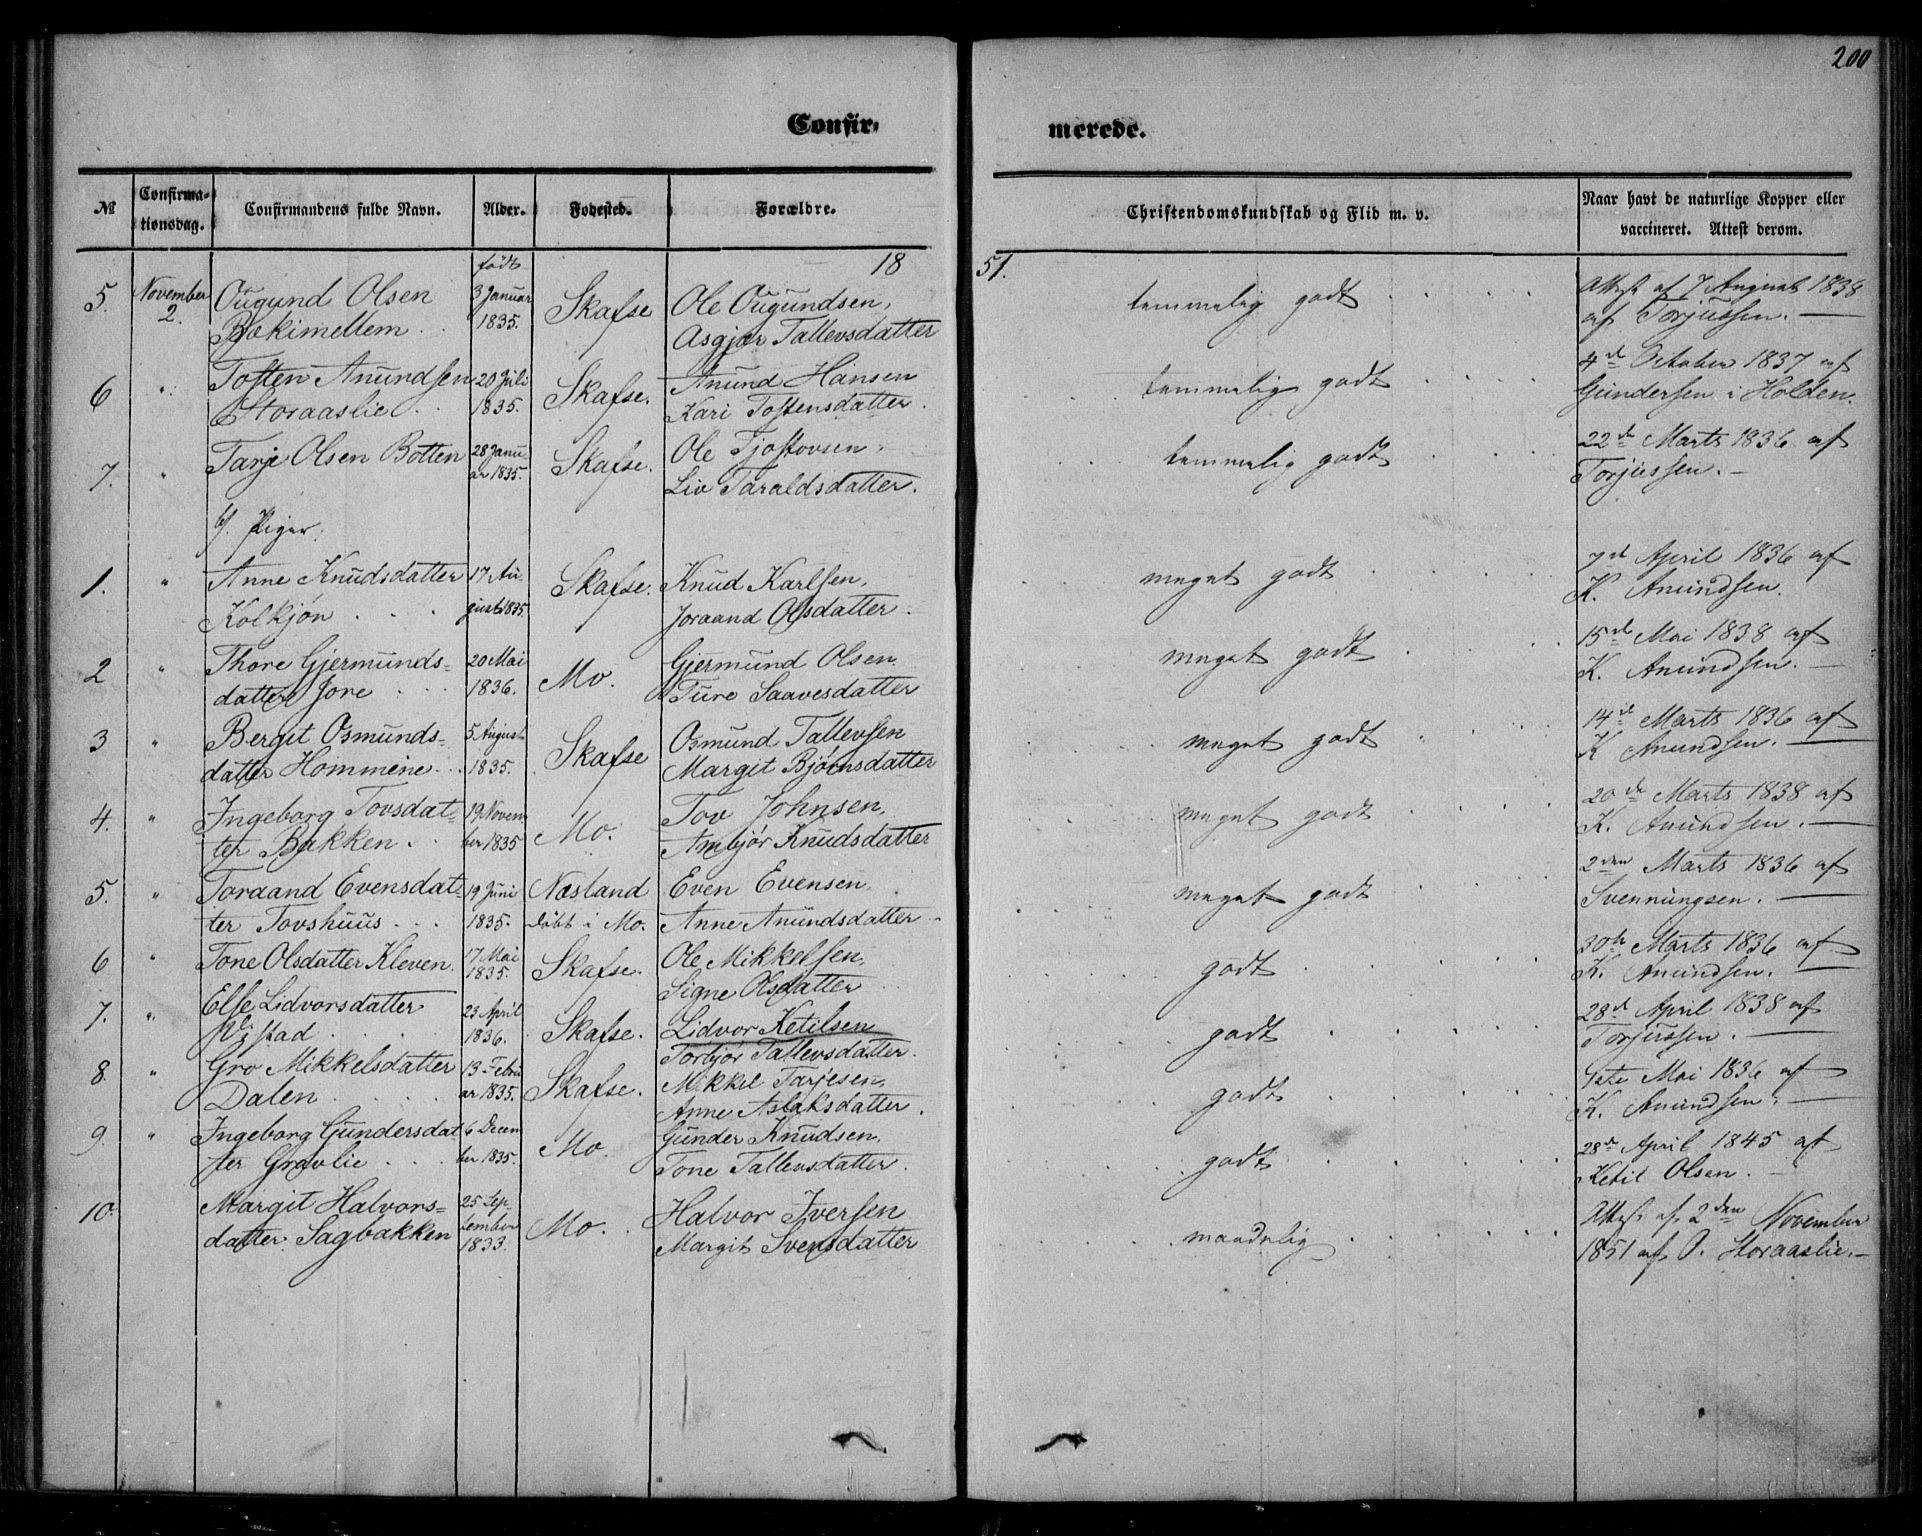 200
Confir-
merede.
№
Confirma-
tionsdag.
Confirmandens fulde Navn.
Alder.
Fødested.
Forældre.
Christendomskundskab og Flid m. v.
Naar havt de naturlige Kopper eller
vaccineret. Attest derom.
født
18
51.
5. November Ougund Olsen 3 Januar Skafse Ole Ougundsen, temmelig godt Attest af 7 August 1838
2. Bækimellem 1835. Asgjær Tallevsdatter af Torjussen.
6 " Tosten Anundsen 20 Juli Skafse. Anund Hansen temmelig godt 4de October 1837 af
Storaaslie 1835. Kari Tostensdatter. Gundersen i Holden.
7. " Tarje Olsen Botten 28 Janu- Skafse. Ole Tjostovsen temmelig godt 22de Marts 1836 af
ar 1835. Liv Taraldsdatter. Torjussen.
b/. Piger.
1. " Anne Knudsdatter 17 Au- Skafse. Knud Karlsen, meget godt 7de April 1836 af
Kolkjøn gust 1835. Joraand Olsdatter. K. Anundsen.
2 " Thore Gjermunds- 20 Mai Mo. Gjermund Olsen, meget godt 15de Mai 1838 af
datter Jore 1836. Ture Saavesdatter K. Anundsen.
3 " Bergit Osmunds- 5 August Skafse Osmund Tallevsen meget godt 14de Marts 1836 af
datter Hommene 1835. Margit Bjørnsdatter K Anundsen.
4. " Ingeborg Tovsdat- 19 Novem- Mo. Tov Johnsen, meget godt 20de Marts 1838 af
ter Bakken. ber 1835 Ambjør Knudsdatter K. Anundsen.
5. " Toraand Evensdat- 19 Juni Næsland Even Evensen, meget godt 2den Marts 1836 af
ter Tovshuus 1835. Døbt i Mo. Anne Anundsdatter Svennungsen.
6 " Tone Olsdatter Kleven. 17 Mai Skafse. Ole Mikkelsen, godt 30te Marts 1836 af
1835. Signe Olsdatter K. Anundsen.
7. " Else Lidvorsdatter 23 April Skafse. Lidvor Ketilsen godt 28de April 1838 af
Ristad 1836. Torbjør Tallevsdatter. Torjussen.
8. " Gro Mikkelsdatter 13 Febru- Skafse. Mikkel Tarjesen, godt 1ste Mai 1836 af
Dalen ar 1835. Anne Aslaksdatter. K. Anundsen.
9. " Ingeborg Gundersdat- 6 Decem- Mo. Gunder Knudsen, godt 28de April 1845 af
ter Gravlie ber 1835. Tone Tallevsdatter. Ketil Olsen.
10. Margit Halvors- 25 Sep- Mo. Halvor Iversen maadelig Attest af 2den November
datter Sagbakken tember Margit Svensdatter 1851 af O. Storaaslie.
1833.